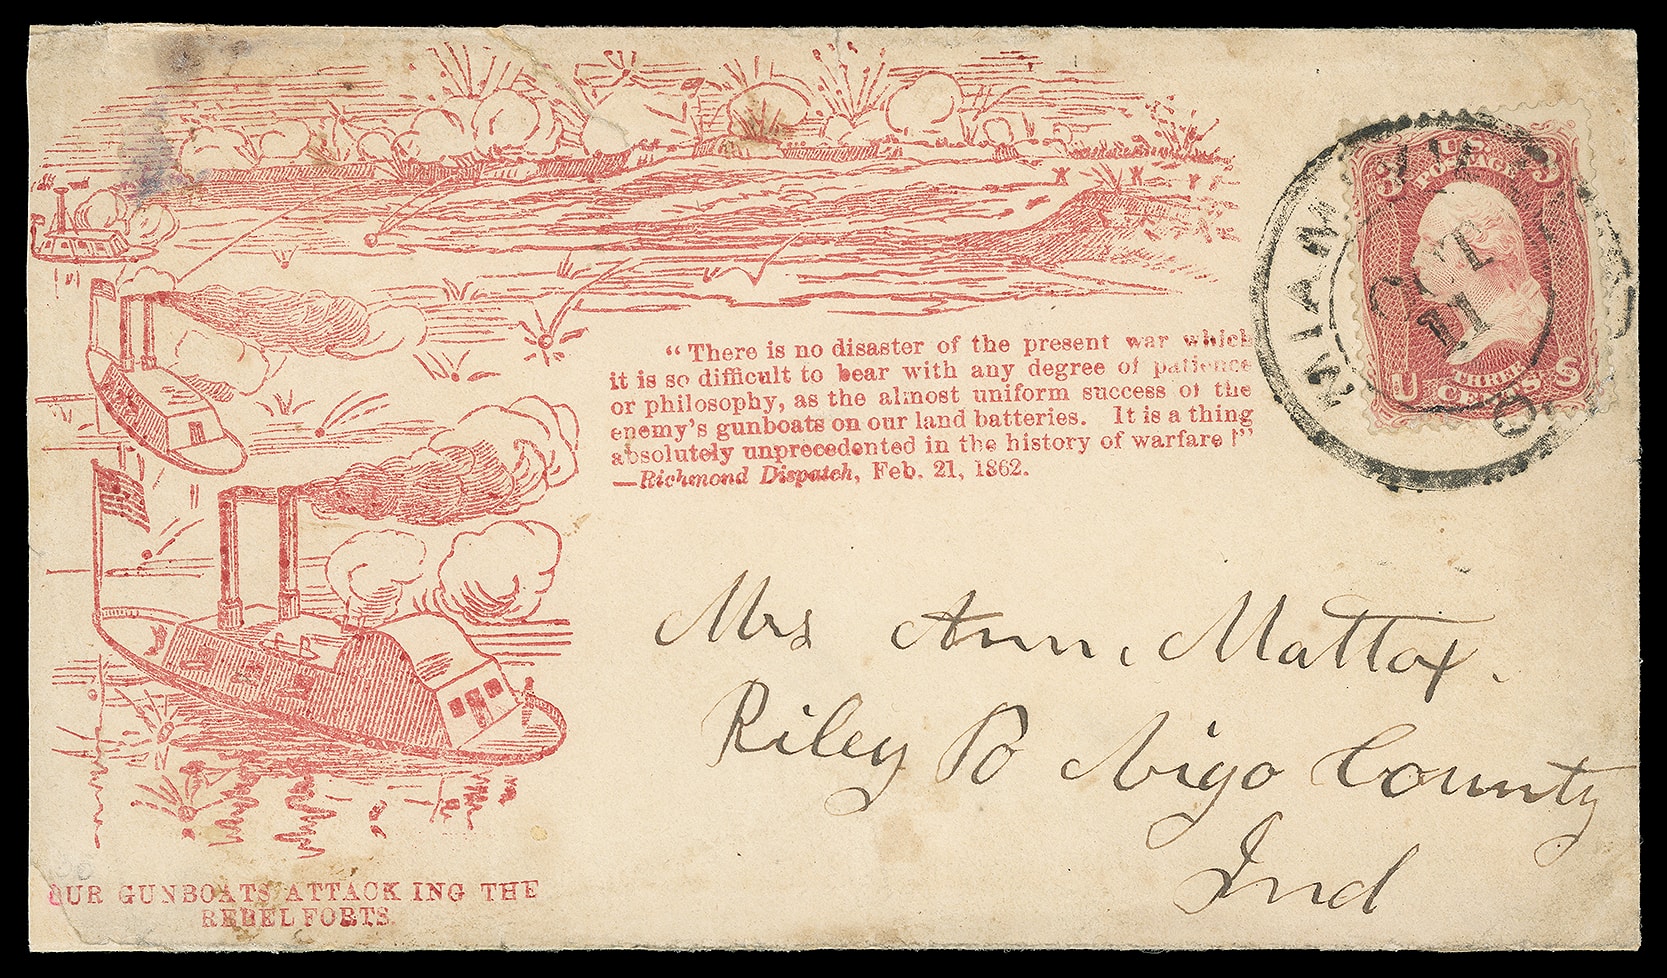 “ There is no disaster of the present war which
it is so difficult to bear with any degree of patience
or philosophy, as the almost uniform success of the
enemy's gunboats on our land batteries. It is a thing
absolutely unprecedented in the history of warfare !”
—Richmond Dispatch, Feb. 21, 1862.
3 U.S. 3
POSTAGE
U THREE S
CENTS
MIAMI
11
Mrs Ann, Mattox.
Riley PO Vigo County
Ind
OUR GUNBOATS ATTACK ING THE
REBEL FORTS.